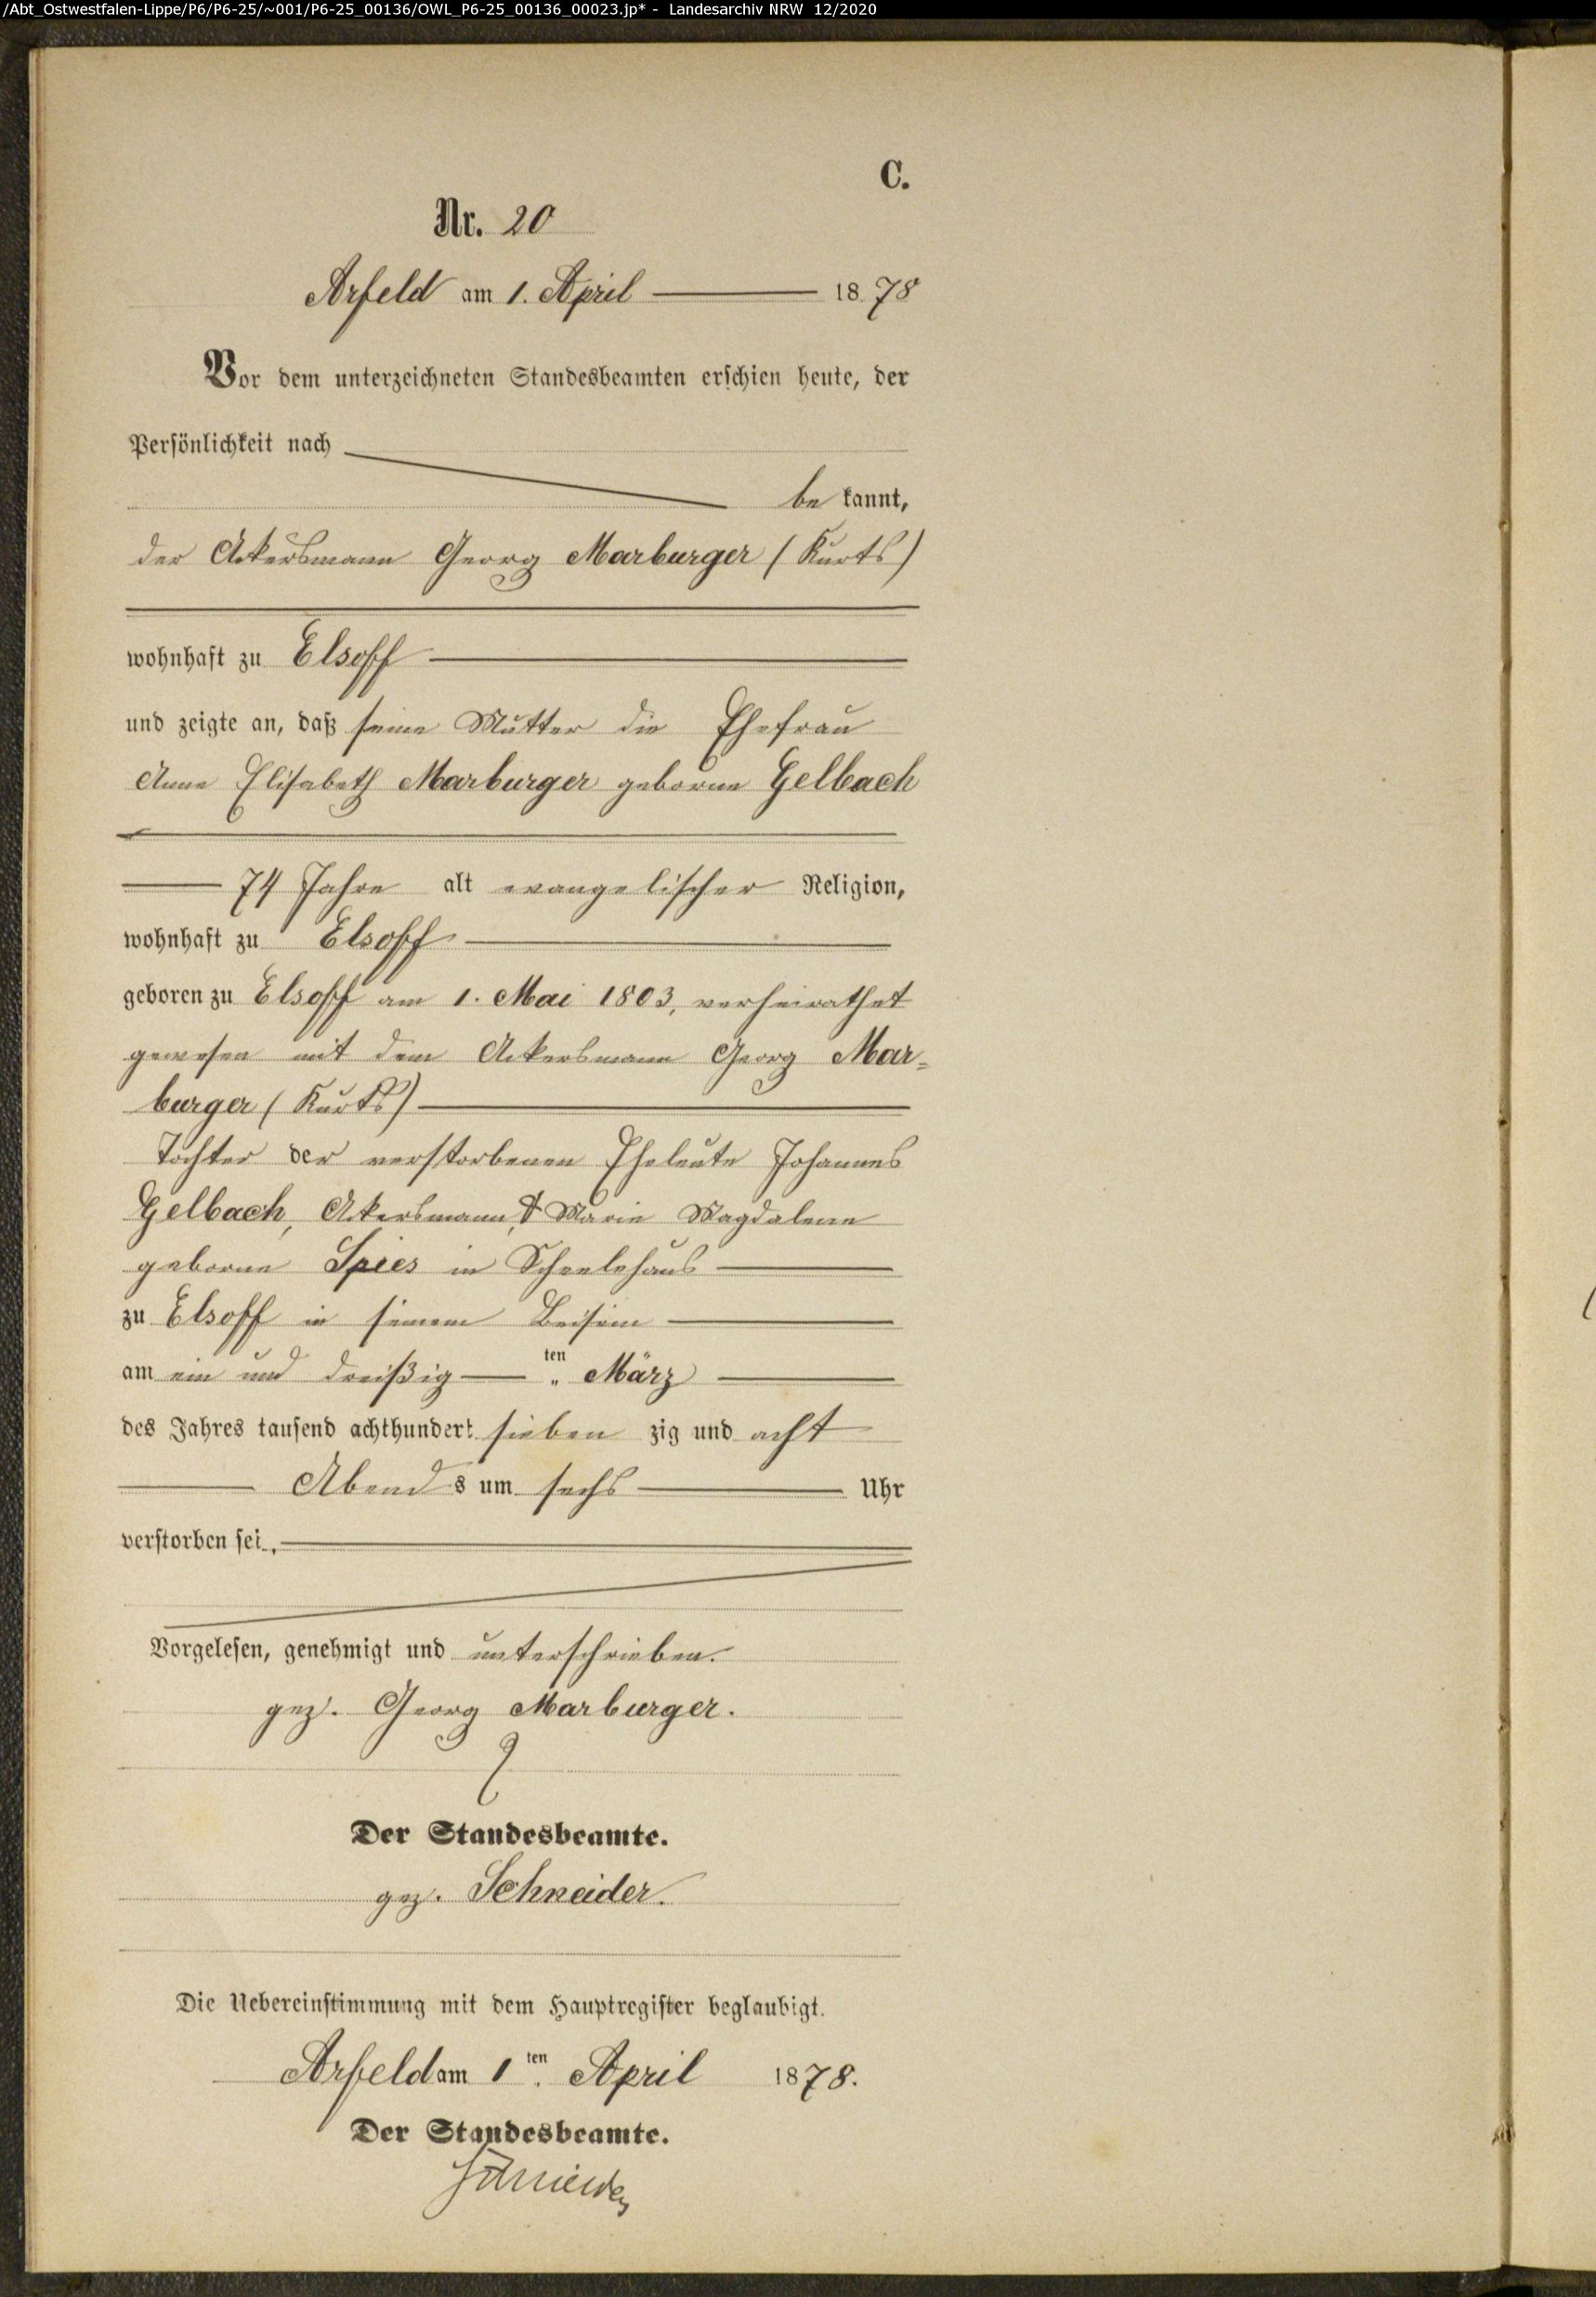 /Abt_Ostwestfalen-Lippe/P6/P6-25/~001/P6-25_00136/OWL_P6-25_00136_00023.jp* - Landesarchiv NRW 12/2020
C.
Nr. 20
Arfeld am 1. April 1878
Vor dem unterzeichneten Standesbeamten erschien heute, der
Persönlichkeit nach
be kannt,
der Ackersmann Georg Marburger (Kurts)
wohnhaft zu Elsoff
und zeigte an, daß seine Mutter die Ehefrau
Anna Elisabeth Marburger geborne Gelbach
74 Jahre alt evangelischer Religion,
wohnhaft zu Elsoff
geboren zu Elsoff am 1. Mai 1803, verheirathet
gewesen mit dem Ackersmann Georg Mar=
burger (Kurts)
Tochter der verstorbenen Eheleute Johannes
Gelbach, Ackersmann, & Marie Magdalene
geborne Spies in Scheelehaus
zu Elsoff in seinem Beisein
am ein und dreißig ten März
des Jahres tausend achthundert sieben zig und acht
Abend s um sechs Uhr
verstorben sei.
Vorgelesen, genehmigt und unterschrieben.
gez. Georg Marburger.
Der Standesbeamte.
gez. Schneider.
Die Uebereinstimmung mit dem Hauptregister beglaubigt.
Arfeld am 1ten April 1878.
Der Standesbeamte.
Schneider